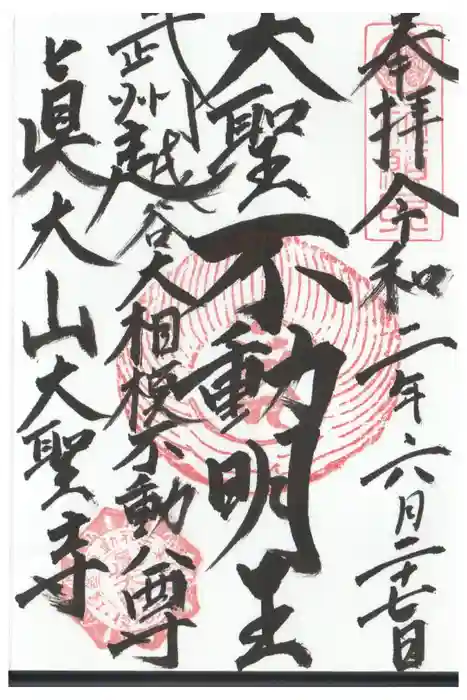 奉拝令和二年六月二十七日
大聖不動明王
武州越谷大相模不動尊
眞大山大聖寺